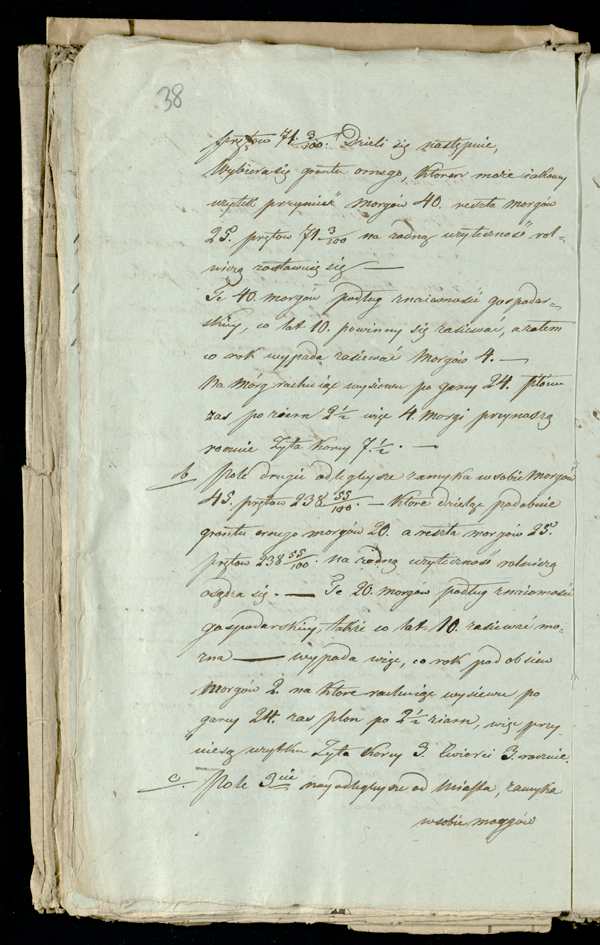 38
prętow 71 3/100. Dzieli się następnie,
Wybiera się gruntu ornego, ktoren może iakowy
użytek przynieść morgów 40. reszta morgów
25. prętow 71 3/100 na żadną użyteczność rol-
niczą zostawuie się —
Te 40. morgów podług znaiomości gospodar-
skiey, co lat 10. powinny się zasiewać, a zatem
co rok wypada zasiewać Morgów 4. —
Na Mórg rachuiąc wysiewu po garcy 24. Plonu
zas po ziarn 2 1/2 więc 4. Morgi przynaszą
rocznie Zyta Korcy 7 1/2. —
b Pole drugie odlegleysze zamyka w sobie Morgów
45. prętow 238 55/100. — Ktore dzieląc podobnie
gruntu ornego morgów 20. a reszta morgów 25.
prętow 238 55/100. na żadną użyteczność rolniczą
osądza się. — Te 20. morgów podług znaiomości
gospodarskiey, także co lat 10. zasiewać mo-
żna — wypada więc, co rok pod obsiew
Morgów 2. na Ktore rachuiąc wysiewu po
garcy 24. zas plon po 2 1/2 ziarn, więc przy-
niesą użytku Zyta Korcy 3. Cwierci 3. rocznie.
c. Pole 3cie nayodlegleysze od Miasta, zamyka
w sobie morgów